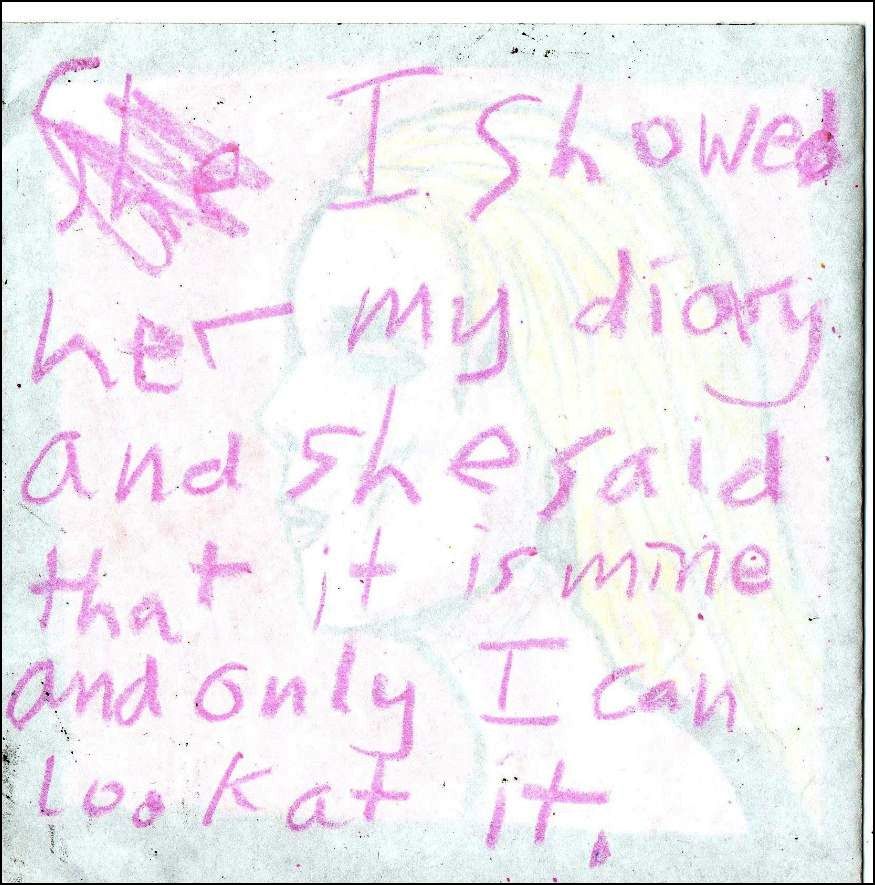 I showed
her my diary
and she said
that it is mine
and only I can
look at it.